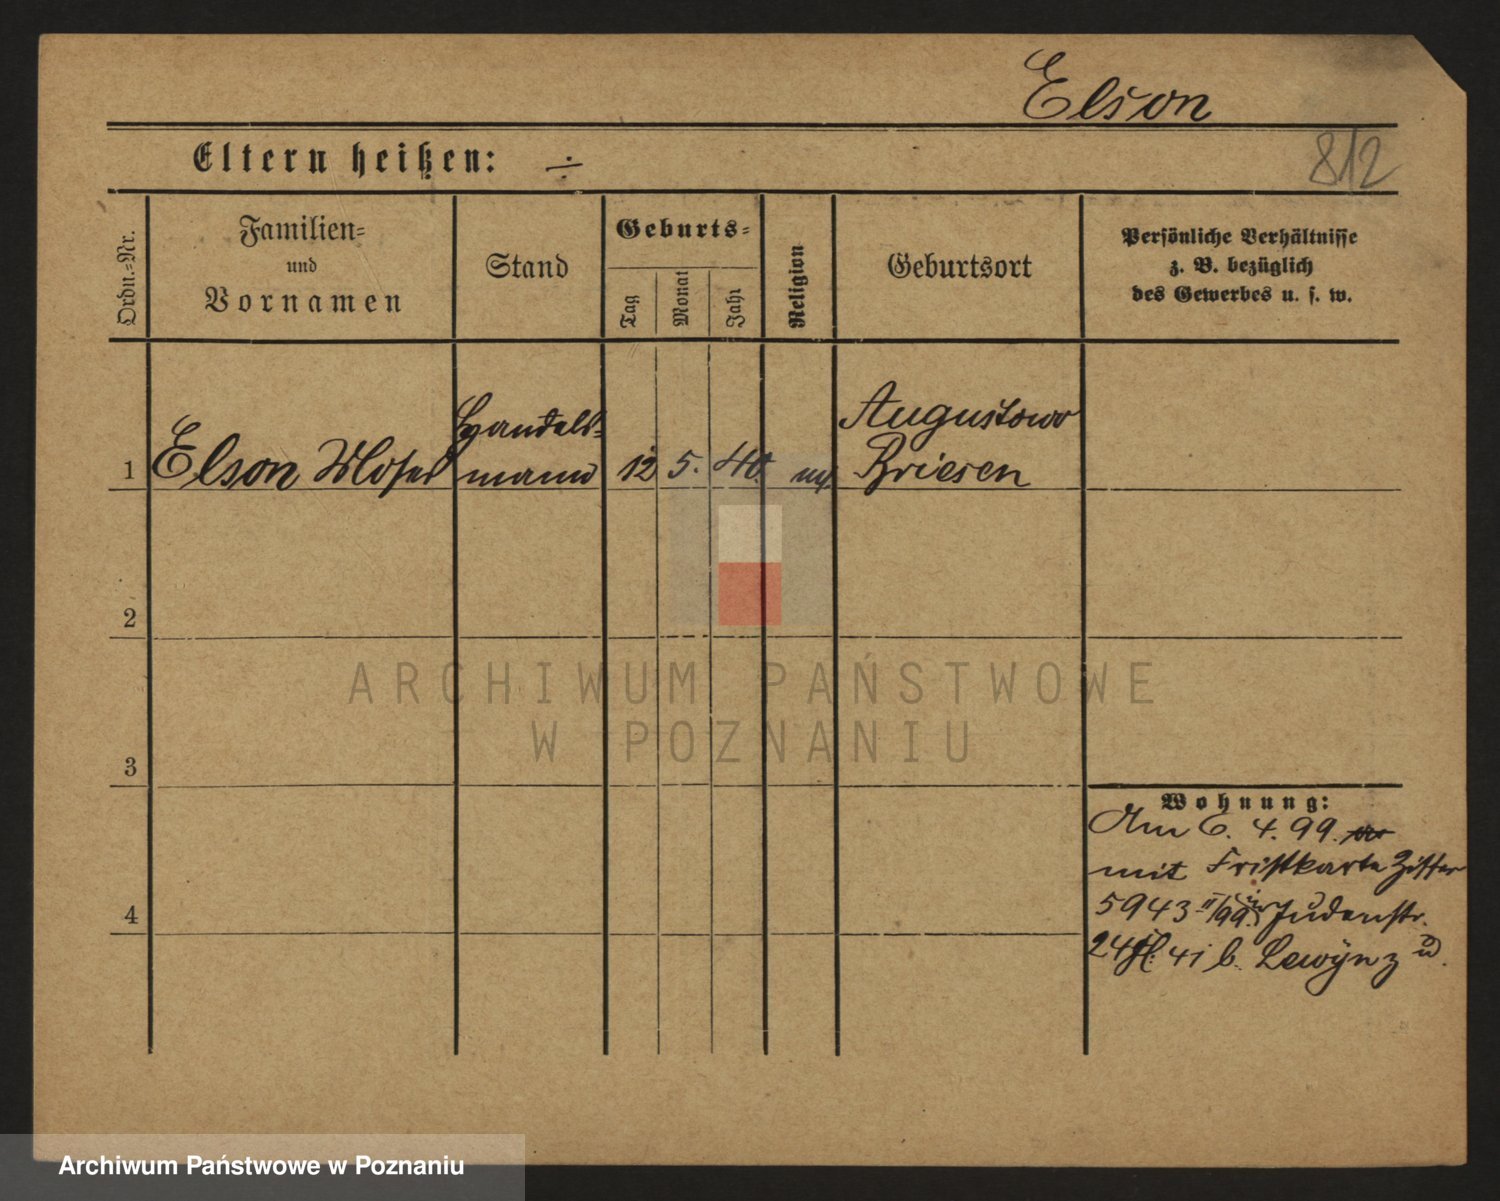 Elson
Eltern heißen: ÷
812
Ordn.=Nr.
Familien=
und
Vornamen
Stand
Geburts=
Tag
Monat
Jahr
Religion
Geburtsort
Persönliche Verhältnisse
z. B. bezüglich
des Gewerbes u. s. w.
1
Elson Moses
Handels=
mann
12
5.
40.
Augustowo
Briesen
2
3
4
ARCHIWUM PAŃSTWOWE
W POZNANIU
Wohnung:
Am 6. 4. 99.
mit Fristkarte Ziffer
5943 II/99. Judenstr.
24 41 b. Lewÿn z
Archiwum Państwowe w Poznaniu